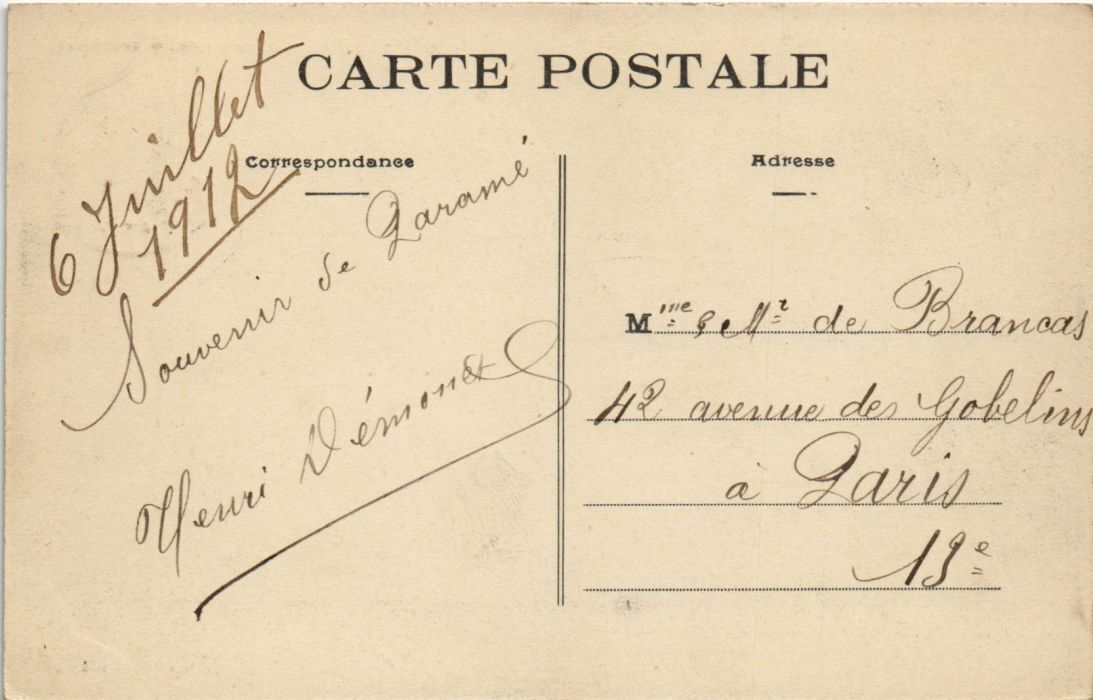 CARTE POSTALE
Correspondance
6 Juillet
1912
Souvenir de Paramé
Henri Démonet
Adresse
Mme & Mr de Brancas
42 avenue des Gobelins
à Paris
13e